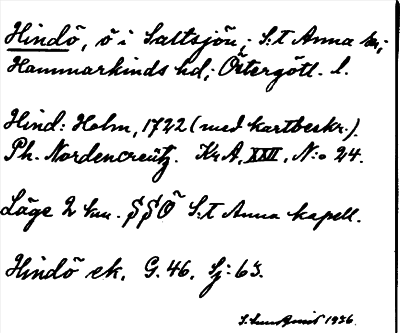 Hindö, ö i Saltsjön; S:t Anna sn;
Hammarkinds hd; Östergötl. l.
Hind: Holm, 1722 (med kartbeskr.).
Ph. Nordencreutz. Kr A, XXII, N:o 24.
Läge 2 km. SSÖ S:t Anna kapell.
Hindö ek. G. 46. Sj: 63.
1936.